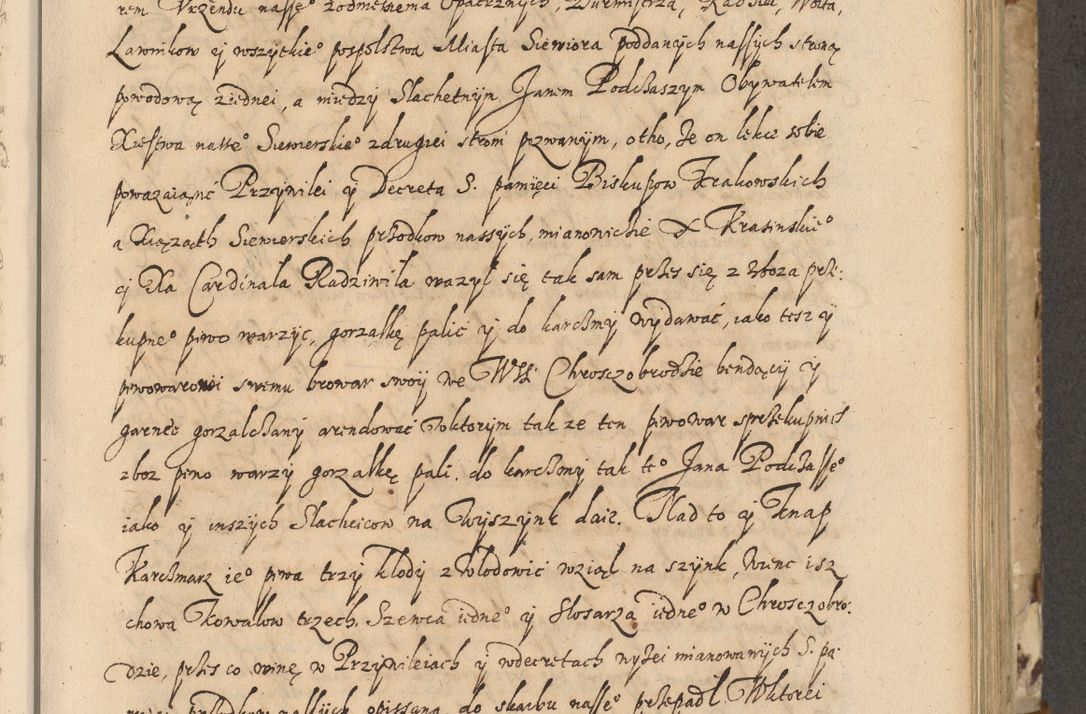 rem Vrzendu nasseº zodmethema Opatrznych, Burmistrza, Radziei, Woita,
Ławnikow ÿ wszytkieº pospolstwa Miasta Siewiora poddancych naszÿch stroną
powodową ziednei, a miedzÿ Slachetnÿm Janem Podchaszym Obywatelem
Xięstwa nasseº Siewierskieº zdrugiei stroni pozwanÿm, otho, że on lekce sobie
powazaiąnc Przÿwilei ÿ Decreta S. pamięci Biskupow Krakowskich
a Xiązath Siewierskich przodkow nassÿch, mianowichie X Krasinskieº
ÿ Xa Cardinala Radziwiła wazył się tak sam przes się z zboza prze:
kupneº piwo warzÿc, gorzałkę palić ÿ do karchmÿ wÿdawać, iako tesz ÿ
piwowarowi swemu browar swoÿ we WSI Chrosczobrodzie bendącÿ ÿ
garnec gorzalchanÿ arendować wktorÿm tak ze ten piwowar sprzekupnich
zboz piwo warzy gorzałkę pali, do karchmÿ tak teº Jana Podchasseº
iako ÿ inszÿch Slachcicow na Wÿszÿnk daie. Nad to ÿ Knap
Karchmarz ieº piwa trzÿ kłodÿ z Wlodowic wziął na szÿnk, Wienc isz
chowa Kowalow trzech, Szewca iedneº ÿ Slosarza iedneº w Chrosczobro:
dzie, przes co winę w Przÿwileiach ÿ wdecretach nÿżei mianowanÿch S. pa
mięci przodkow nassÿch opissaną do skarbu nasseº przepadł. Wktorei